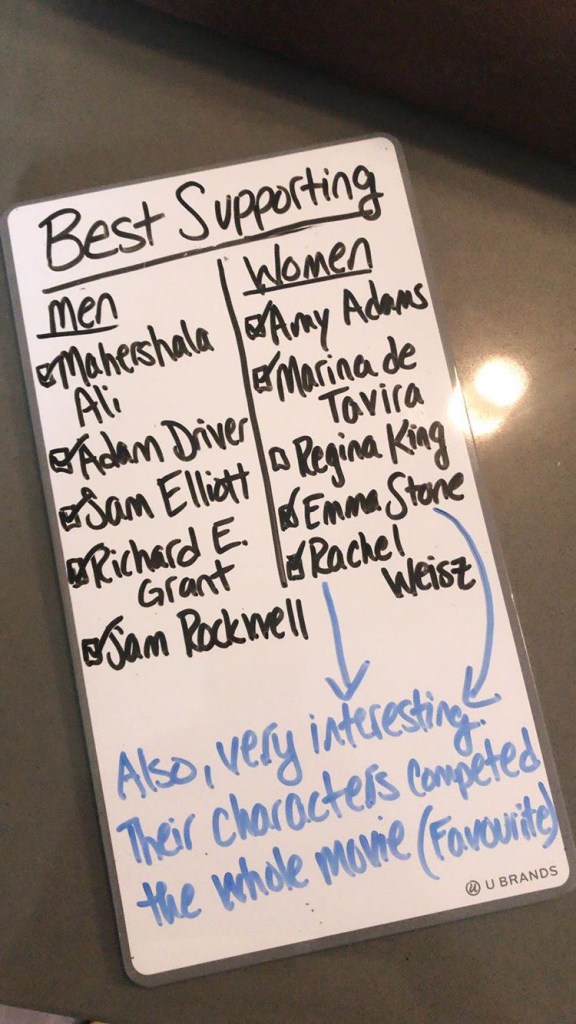 Best Supporting
Men
Mahershala
Ali
Adam Driver
Sam Elliott
Richard E.
Grant
Sam Rockwell
Women
Amy Adams
Marina de
Tavira
Regina King
Emma Stone
Rachel
Weisz
Also, very interesting.
Their characters competed
the whole movie (Favourite)
U BRANDS